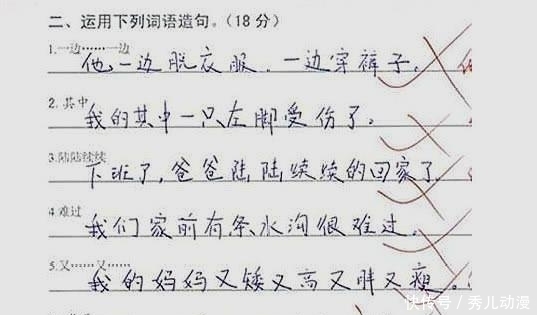 二、运用下列词语造句。(18分)
1.一边……一边
他一边脱衣服,一边穿裤子。
2.其中
我的其中一只左脚受伤了。
3.陆陆续续
下班了,爸爸陆陆续续的回家了。
4.难过
我们家前有条水沟很难过。
5.又……又……
我的妈妈又矮又高又胖又瘦。
快传号/秀儿动漫